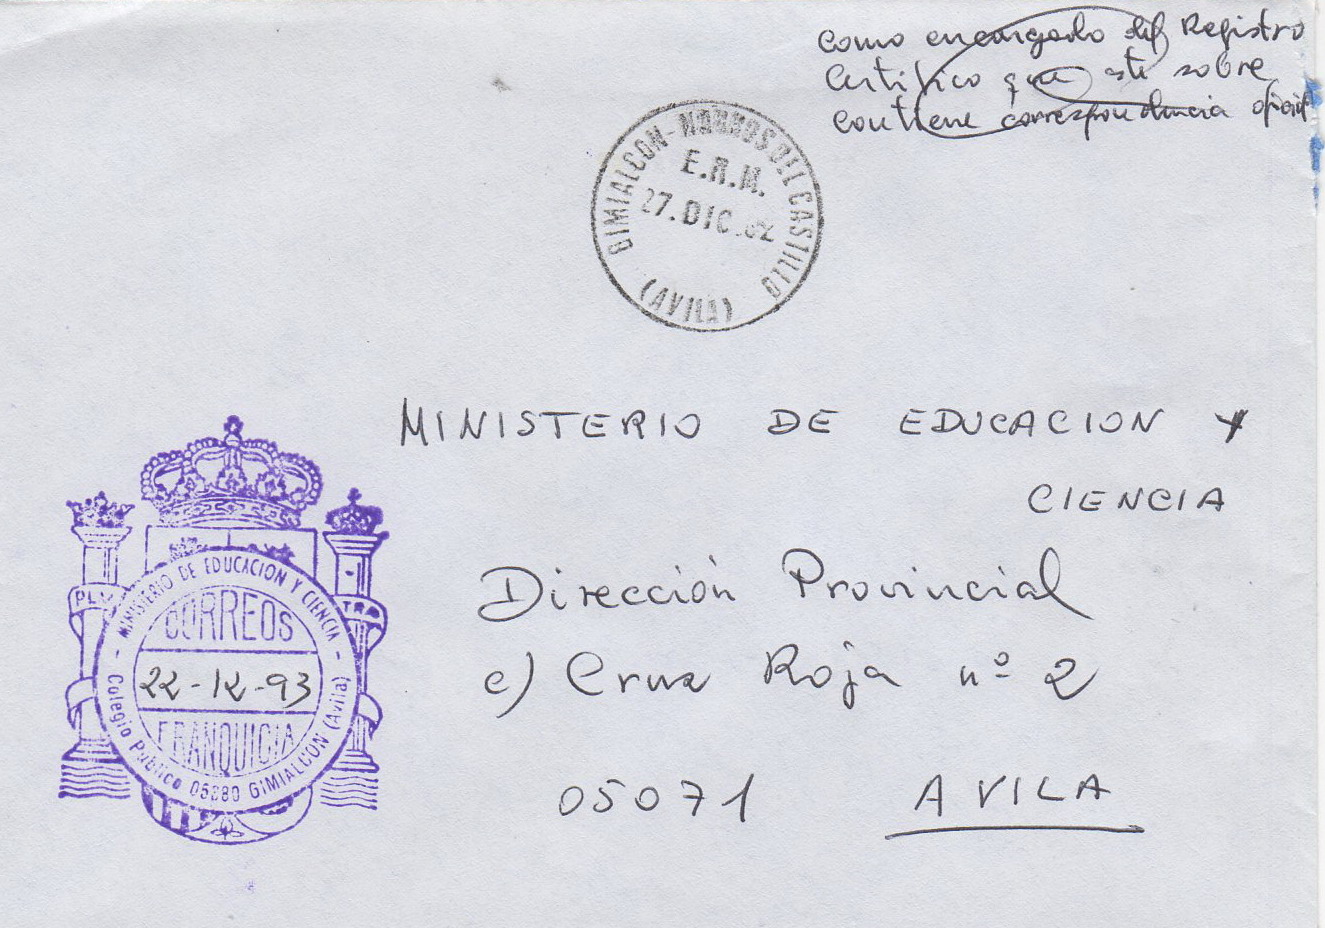 como encargado del Registro
Certifico que este sobre
contiene correspondencia oficial
GIMIALCON-NARROS DEL CASTILLO
E.R.M.
27.DIC.
(AVILA)
MINISTERIO DE EDUCACION Y
CIENCIA
Dirección Provincial
c) Cruz Roja nº 2
05071 AVILA
- MINISTERIO DE EDUCACION Y CIENCIA -
CORREOS
22-12-93
FRANQUICIA
Colegio Público 05380 GIMIALCON (Avila)
PLV
TRA